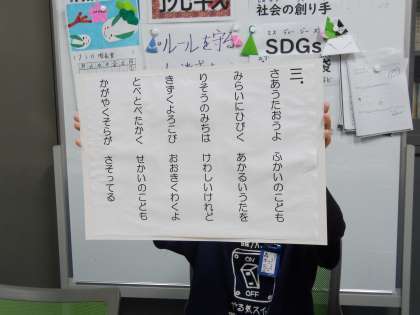 ルールを守る
社会の創り手
SDGs
三．
さあうたおうよ　ふかいのこども
みらいにひびく　あかるいうたを
りそうのみちは　けわしいけれど
きずくよろこび　おおきくわくよ
とべとべたかく　せかいのこども
かがやくそらが　さそってる
ON
OFF